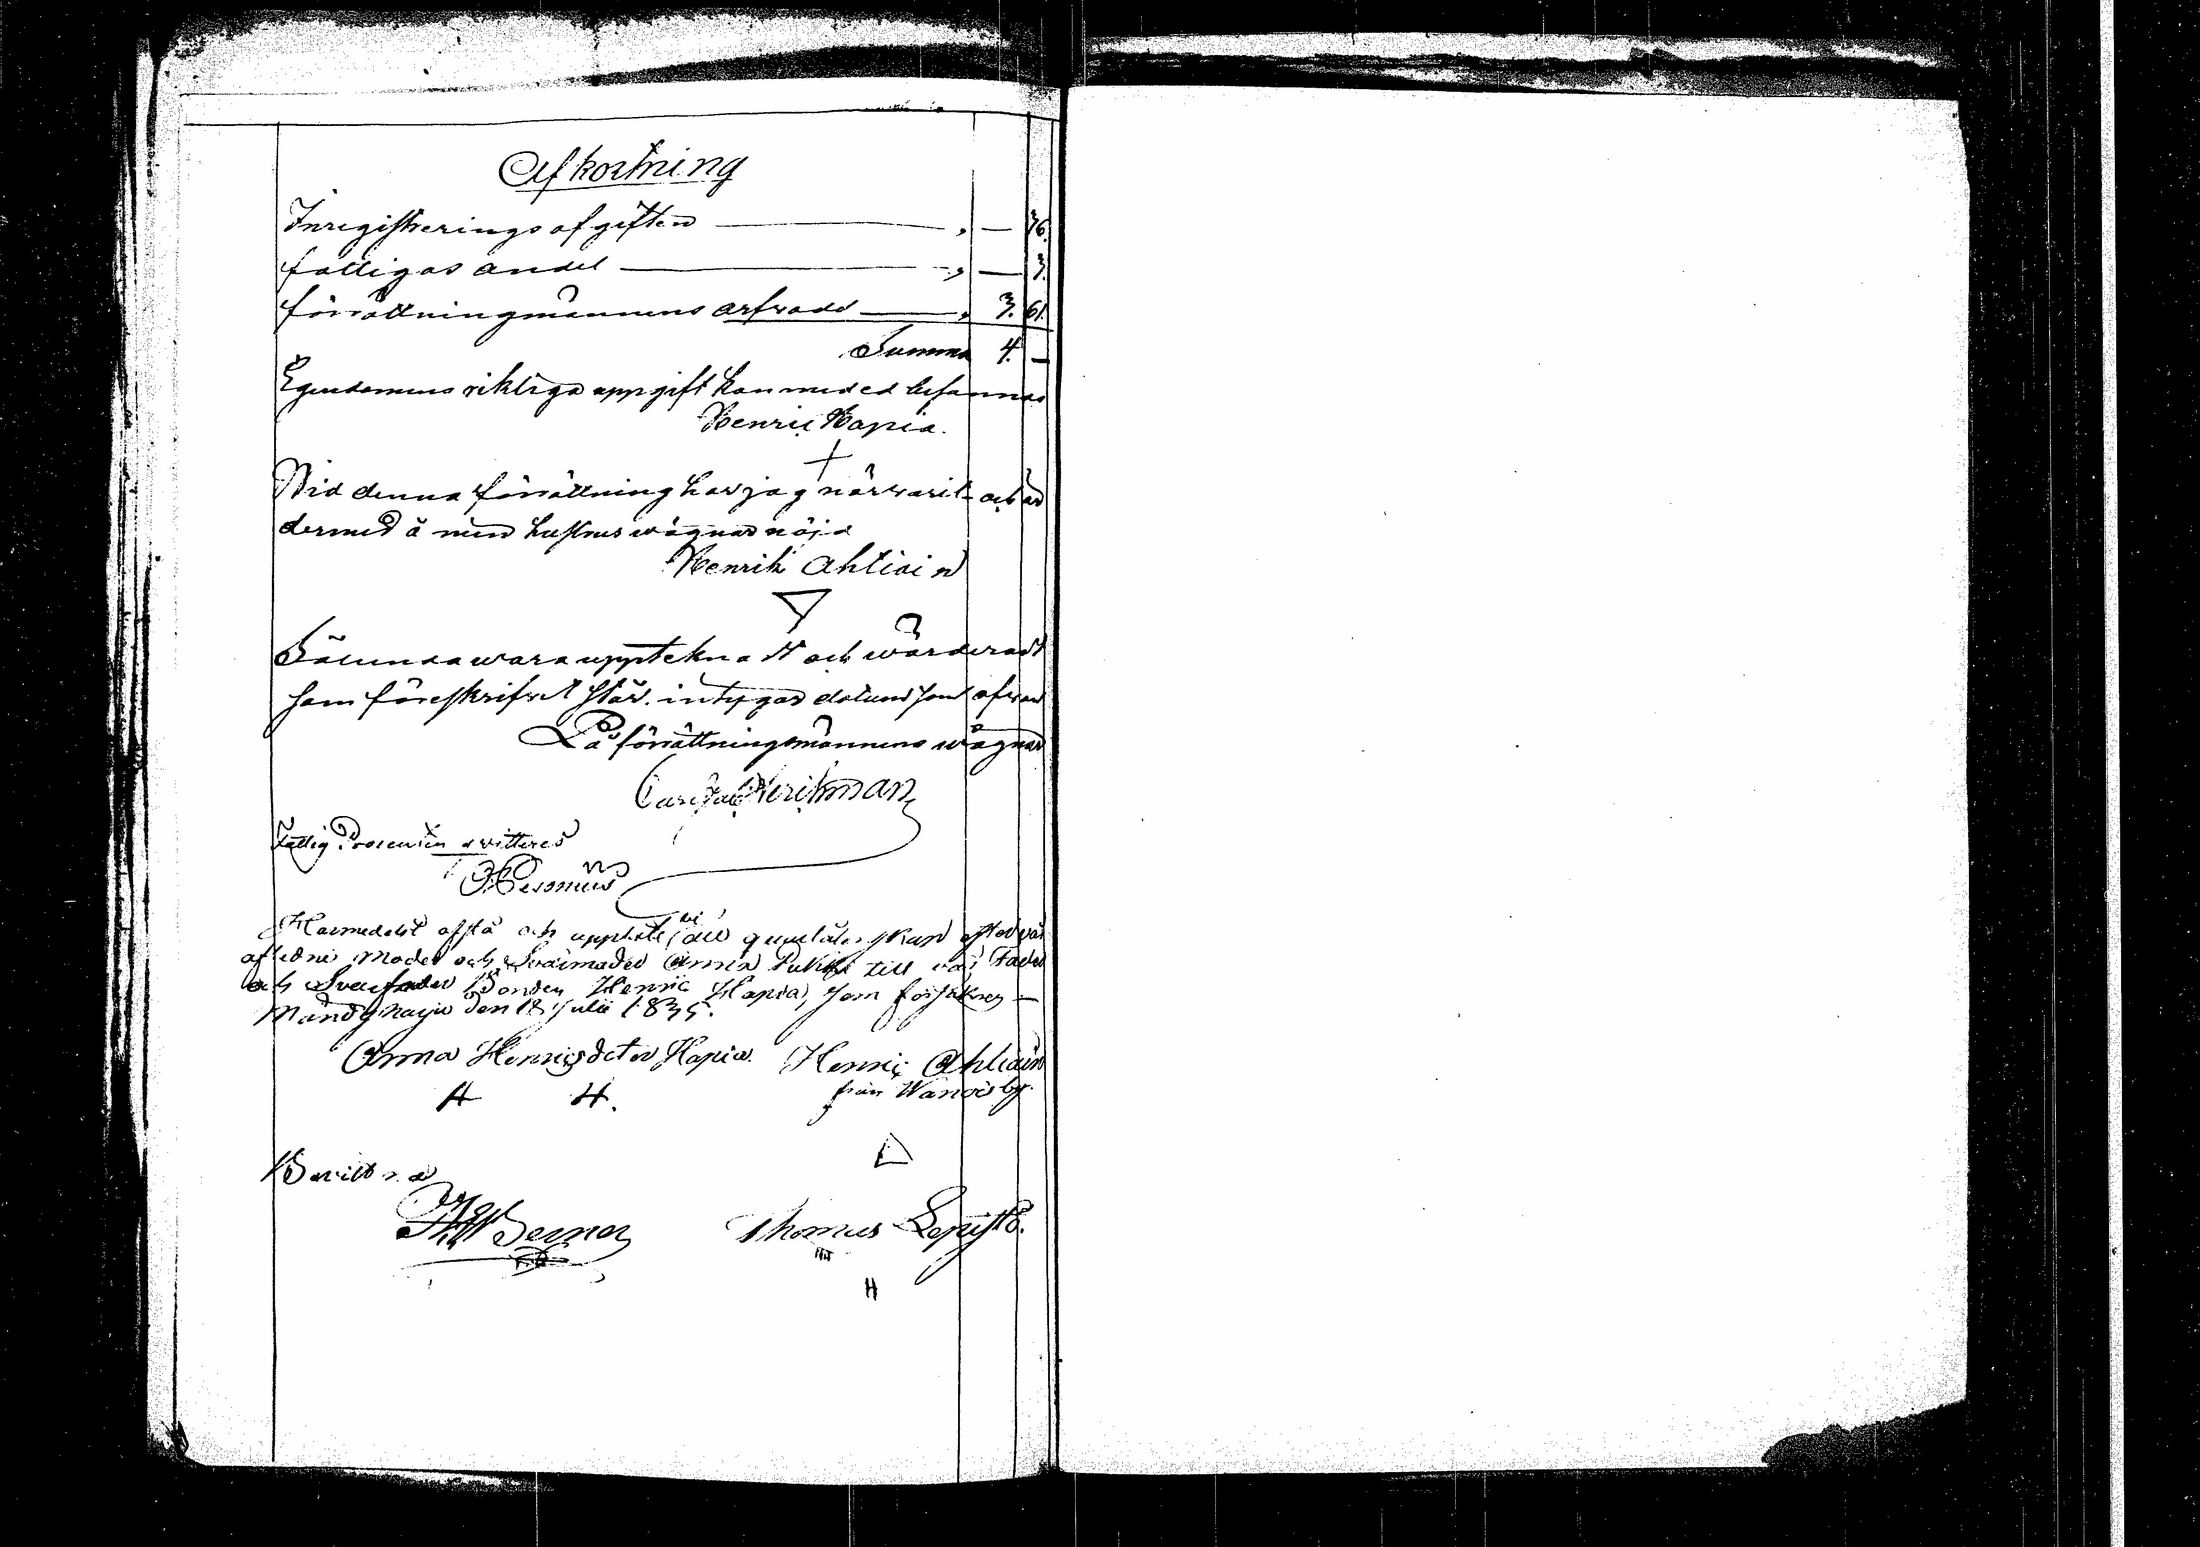 Afkortning
Inregistrerings afgiften — „ — 36.
fattigas andel — „ — 3.
förrättningmännens arfvode — „ 3. 61.
Summa 4. —
Egendomens riktiga uppgift kan med ed befannas
Henric Hapia.
+
Wid denna förrättning har jag närvarit och är
dermed å min hustrus wägnar nöjd
Henrik Ahliain
Sålunda wara uppteknadt och wärderadt
som föreskrifvet står. intygar datum som ofvan
På förrättningsmännens wägnar
Fattig Procenten qvitteras
Härmedelst afstå och upplåte vi all qvarlåtenskap efter vår
aflidne Moder och Svärmoder Anna till vår Fader
och Svärfader Bonden Henric Hapia, som försäkras —
den 18 Julii 1835.
Anna Henricsdotter Hapia. Henric Ahliain
från Wanois by.
A H.
Bevittna
Thomas Lepistö.
H